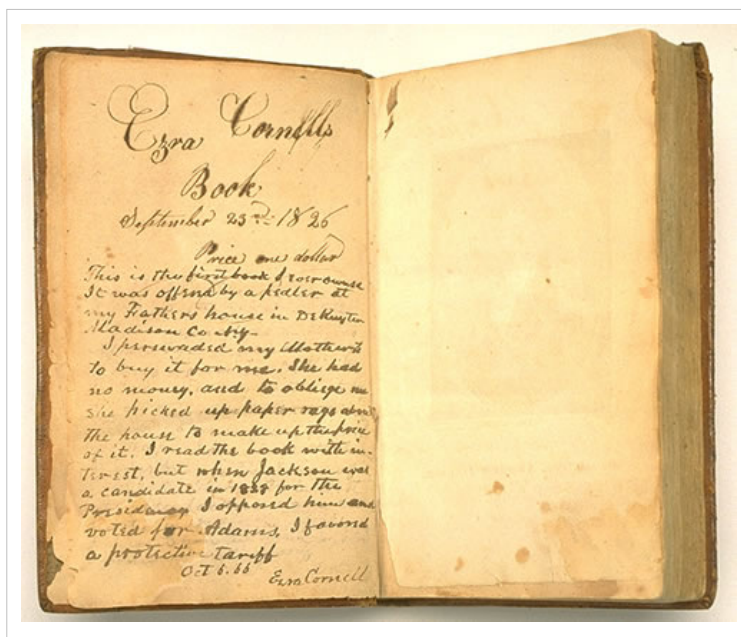 Ezra Cornells
Book
September 23rd 1826
Price one dollar
This is the first book I ever owned
It was offerd by a pedler at
my Fathers house in DeRuyter
Madison Co Ny.
I perswaded my Mother
to buy it for me. She had
no money, and to obliege me
she picked up paper rags
the house to make up the price
of it. I read the book with in-
terest, but when Jackson was
a candidate in 1828 for the
Presidency I opposed him and
voted for Adams, I favord
a protective tariff
Oct 6. 66
Ezra Cornell